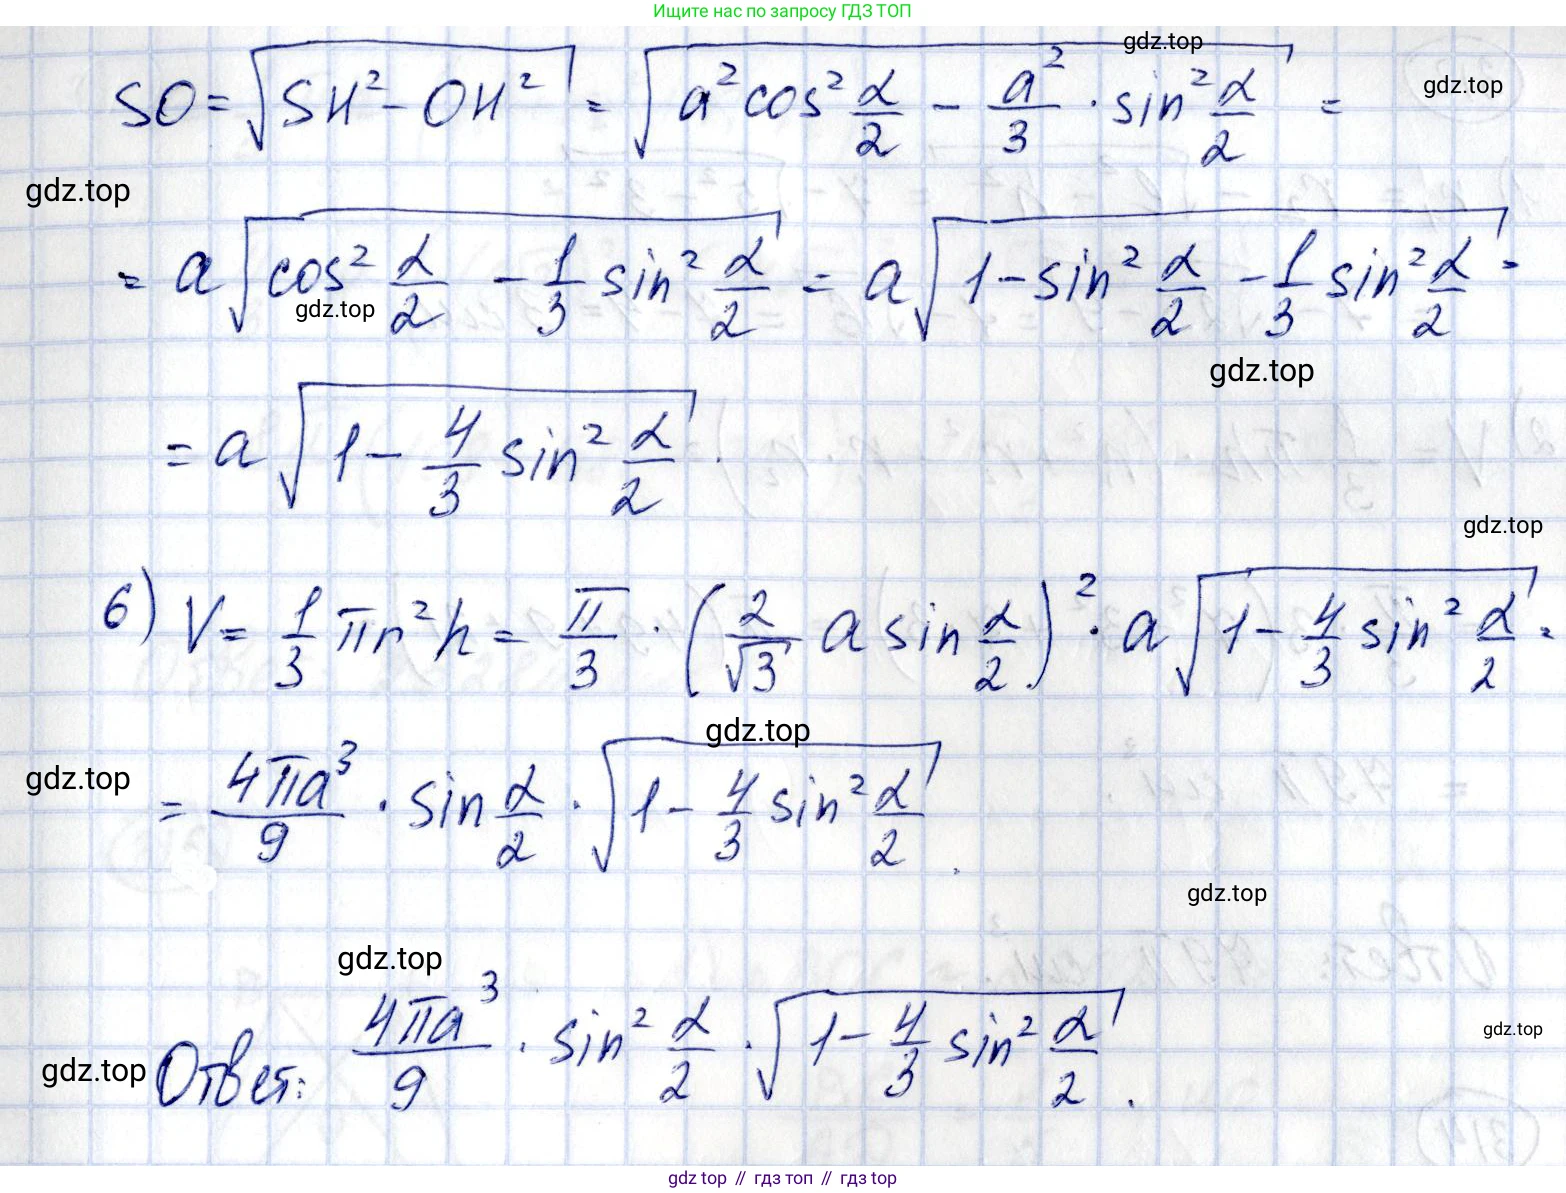 Ищите нас по запросу ГДЗ ТОП
gdz.top
SO = √(SH² − OH²) = √(a² cos² α/2 − a²/3 · sin² α/2) =
gdz.top
gdz.top
= a√(cos² α/2 − 1/3 sin² α/2) = a√(1 − sin² α/2 − 1/3 sin² α/2) =
gdz.top
gdz.top
= a√(1 − 4/3 sin² α/2).
gdz.top
6) V = 1/3 πr²h = π/3 · (2/√3 a sin α/2)² · a√(1 − 4/3 sin² α/2) =
gdz.top
gdz.top
= 4πa³/9 · sin α/2 · √(1 − 4/3 sin² α/2).
gdz.top
gdz.top
gdz.top
gdz.top
Ответ: 4πa³/9 · sin² α/2 · √(1 − 4/3 sin² α/2).
gdz top // гдз топ // gdz.top